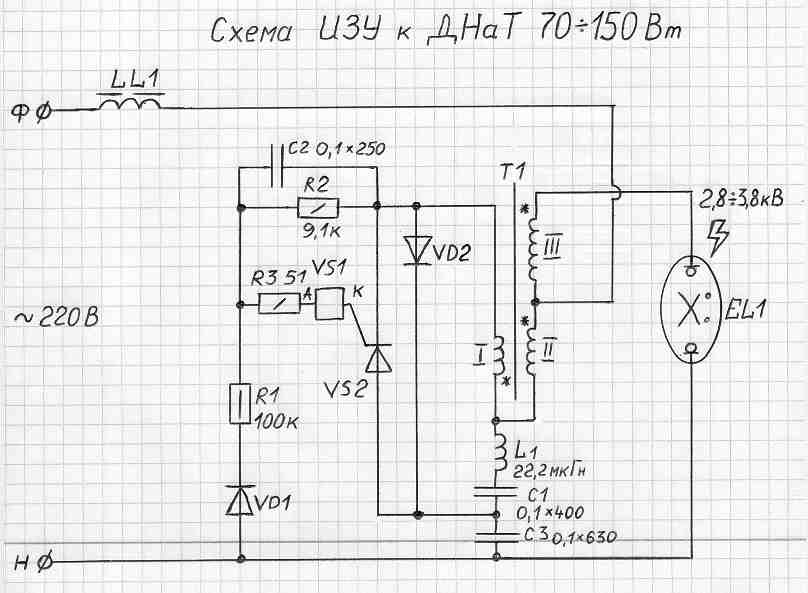 Схема ИЗУ к ДНаТ 70÷150 Вт
LL1
Ф
C2 0,1×250
T1
R2
9,1к
*
III
2,8÷3,8кВ
VD2
R3 51
VS1
А
К
~220В
*
I
II
*
EL1
VS2
R1
100к
L1
22,2мкГн
VD1
C1
0,1×400
C3 0,1×630
Н